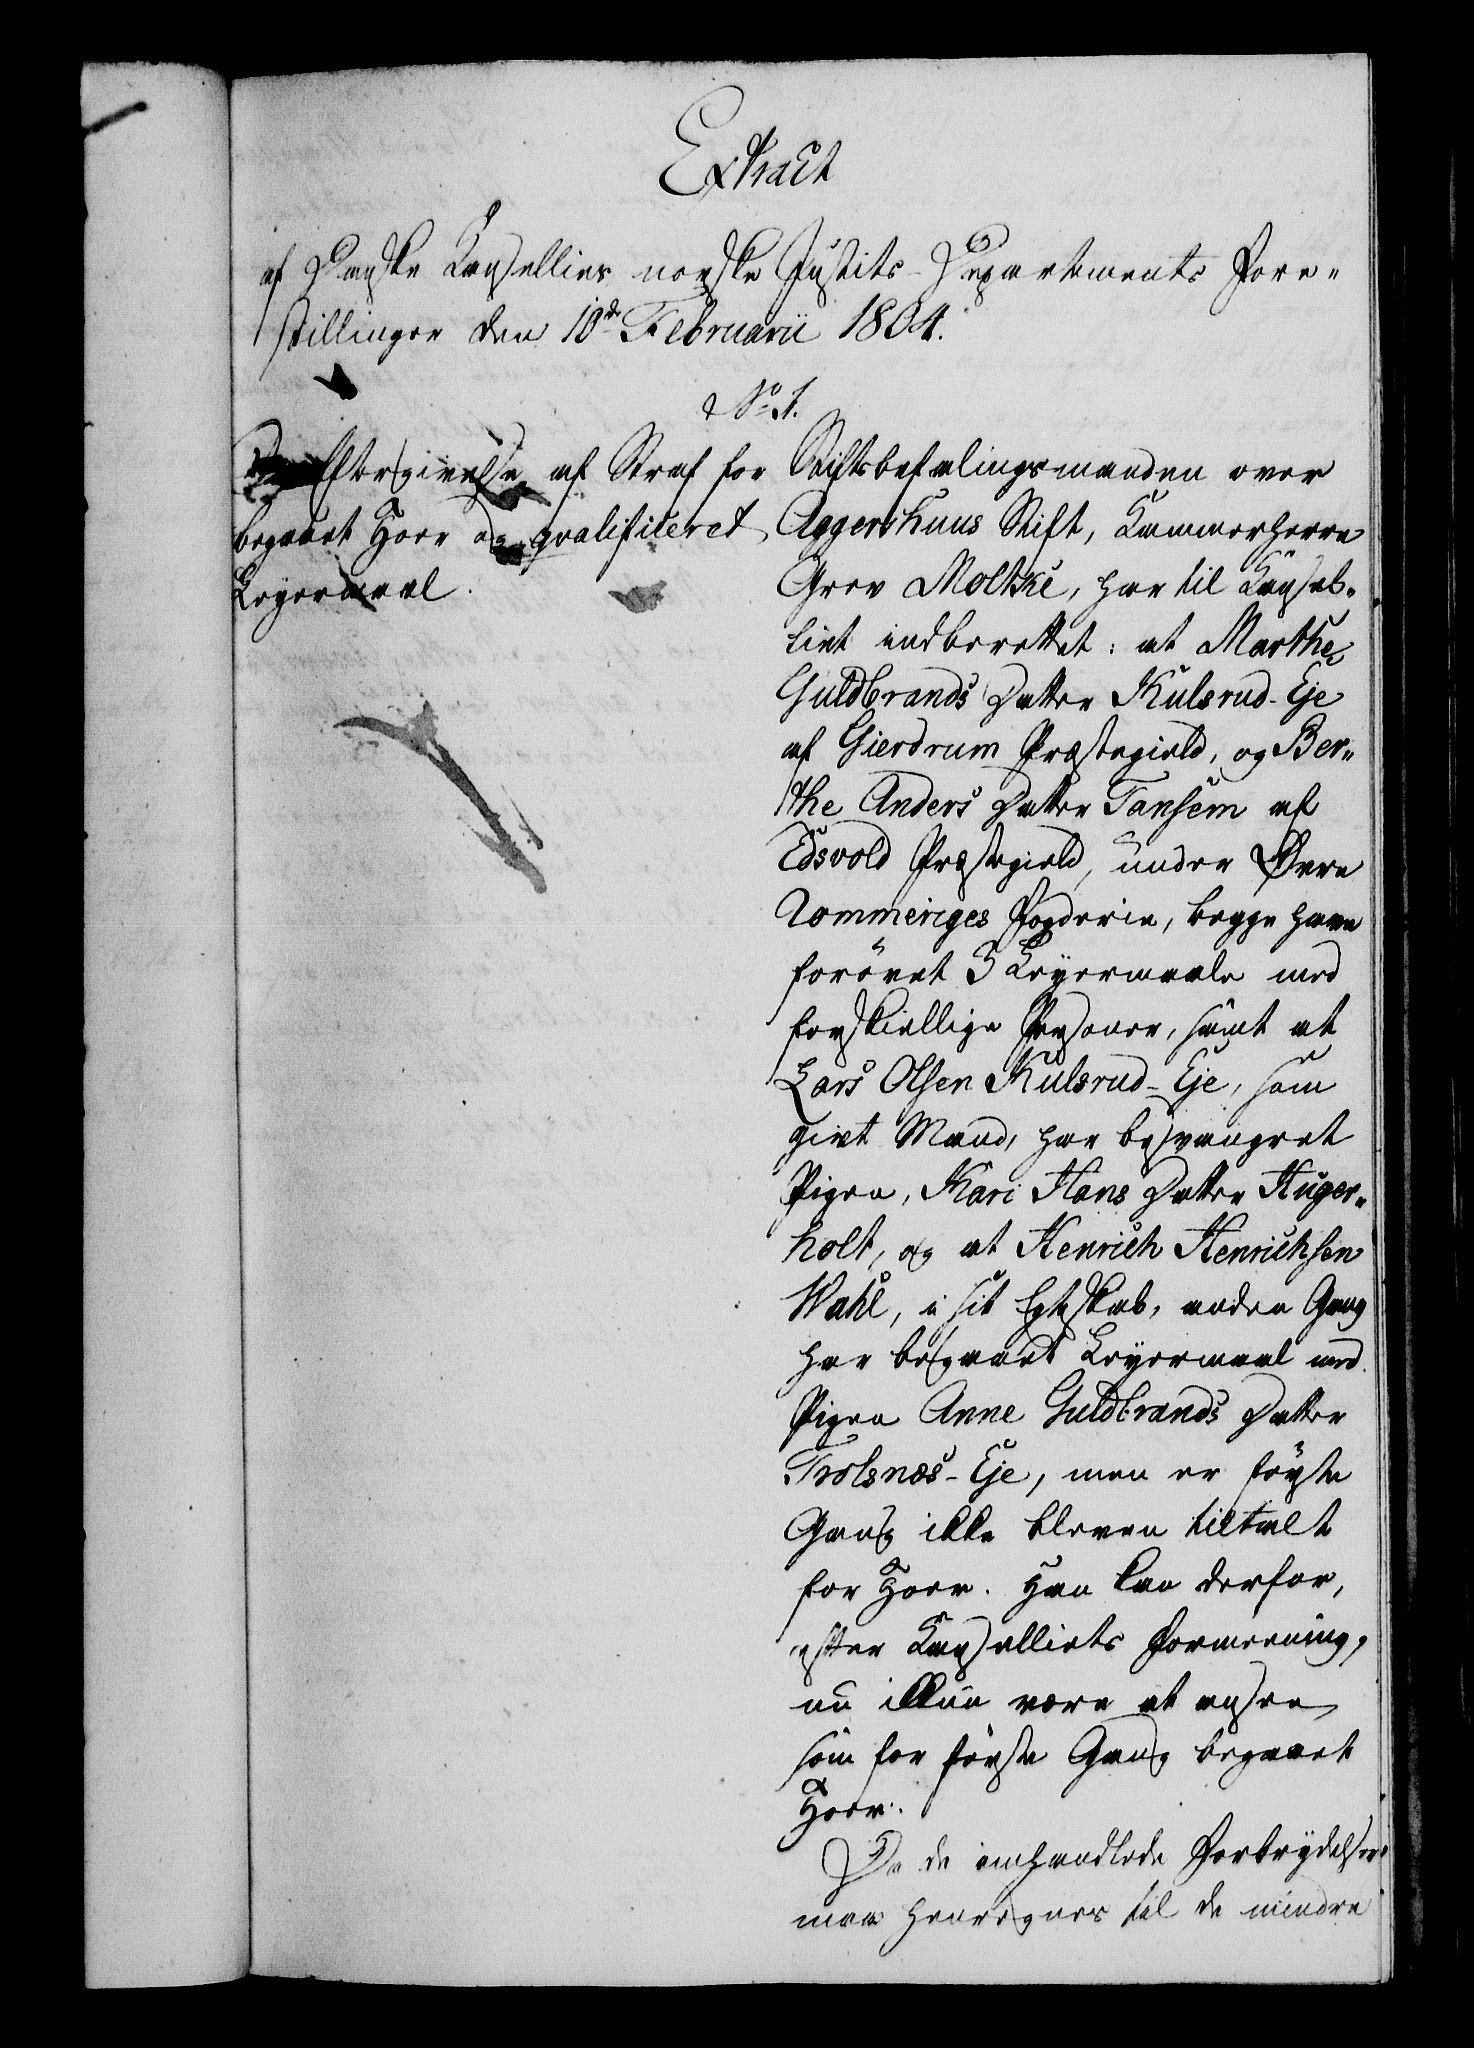 Extract
af Danske Cancellies norske Justits-Departements Fore-
stillinger den 10de Februarii 1804.
No 1.
Eftergivelse af Straf for
begaaet Hoer og qvalificeret
Leyermaal.
Stiftsbefalingsmanden over
Aggershuus Stift, Kammerherre
Grev Moltke, har til Cancel-
liet indberettet: at Marthe
Guldbrands Datter Kulsrud-Eje
af Gierdrum Præstegield, og Ber-
the Anders Datter Tansem af
Edsvold Præstegield, under Øvre
Rommeriges Fogderie, begge have
forövet 3 Leyermaale med
forskiellige Personer, samt at
Lars Olsen Kulsrud-Eje, som
givt Mand, har besvangret
Pigen, Kari Hans Datter Huger-
holt, og at Henrich Henrichsen
Wahl, i sit Egteskab, anden Gang
har begaaet Leyermaal med
Pigen Anne Guldbrands Datter
Trolsnæs-Eje, men er förste
Gang ikke bleven tiltalt
for Hoer. Han kan derfor,
efter Cancelliets Formeening,
nu ikkun være at ansee
som for förste Gang begaaet
Hoer.
Da de omhandlede Forbrydelser
maa henregnes til de mindre